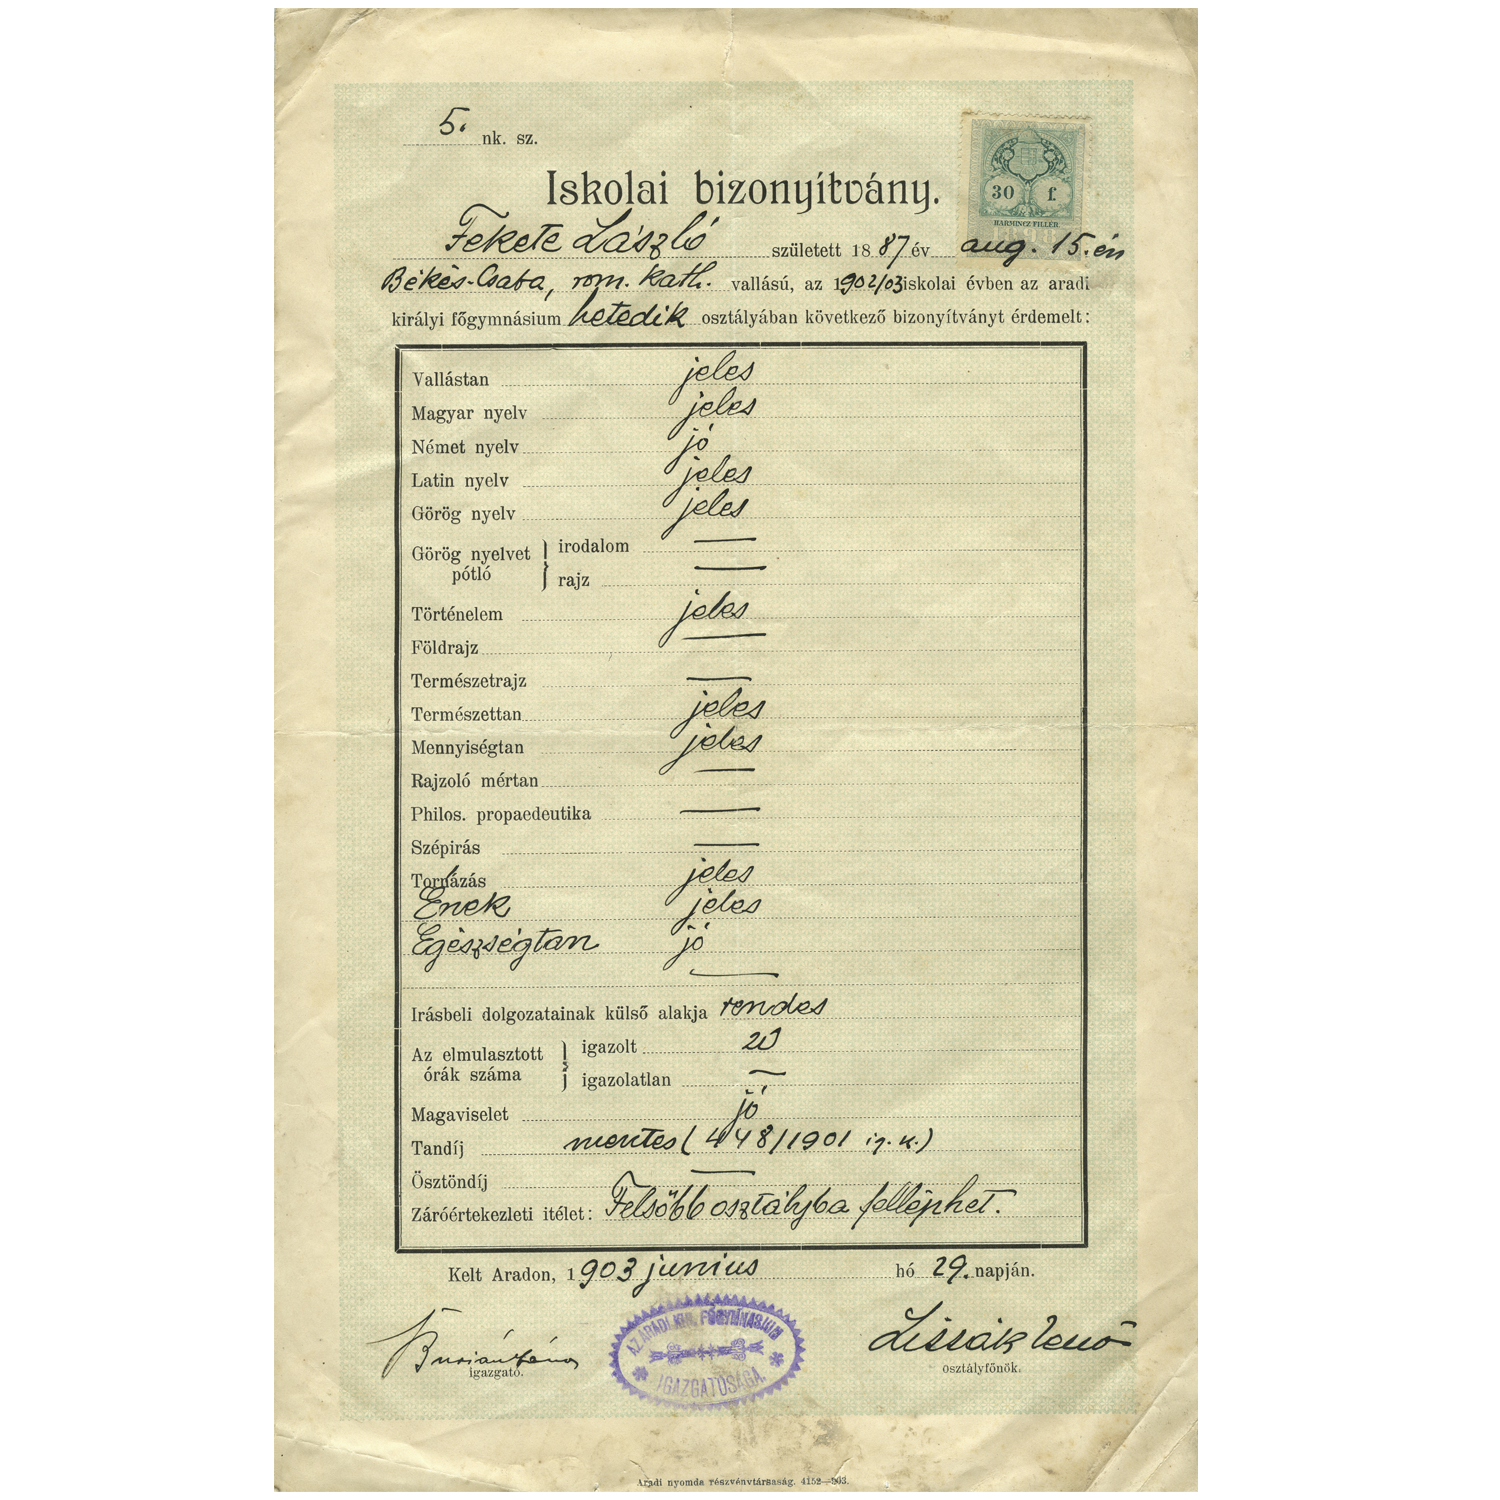 5. nk. sz.
30 f.
HARMINCZ FILLÉR.
Iskolai bizonyítvány.
Fekete László született 1887 év aug. 15. én
Békés-Csaba, rom. kath. vallású, az 1902/03 iskolai évben az aradi
királyi főgymnásium hetedik osztályában következő bizonyítványt érdemelt:
Vallástan jeles
Magyar nyelv jeles
Német nyelv jó
Latin nyelv jeles
Görög nyelv jeles
Görög nyelvet pótló irodalom —
rajz —
Történelem jeles
Földrajz —
Természetrajz —
Természettan jeles
Mennyiségtan jeles
Rajzoló mértan —
Philos. propaedeutika —
Szépirás —
Tornázás jeles
Ének jeles
Egészségtan jó
—
Irásbeli dolgozatainak külső alakja rendes
Az elmulasztott órák száma igazolt 20
igazolatlan —
Magaviselet jó
Tandíj mentes (448/1901 ig. k.)
Ösztöndíj —
Záróértekezleti itélet: Felsőbb osztályba felléphet.
Kelt Aradon, 1903 junius hó 29. napján.
Burián János
igazgató.
AZ ARADI KIR. FŐGYMNASIUM
IGAZGATÓSÁGA
Lissák Jenő
osztályfőnök.
Aradi nyomda részvénytársaság. 4152—903.